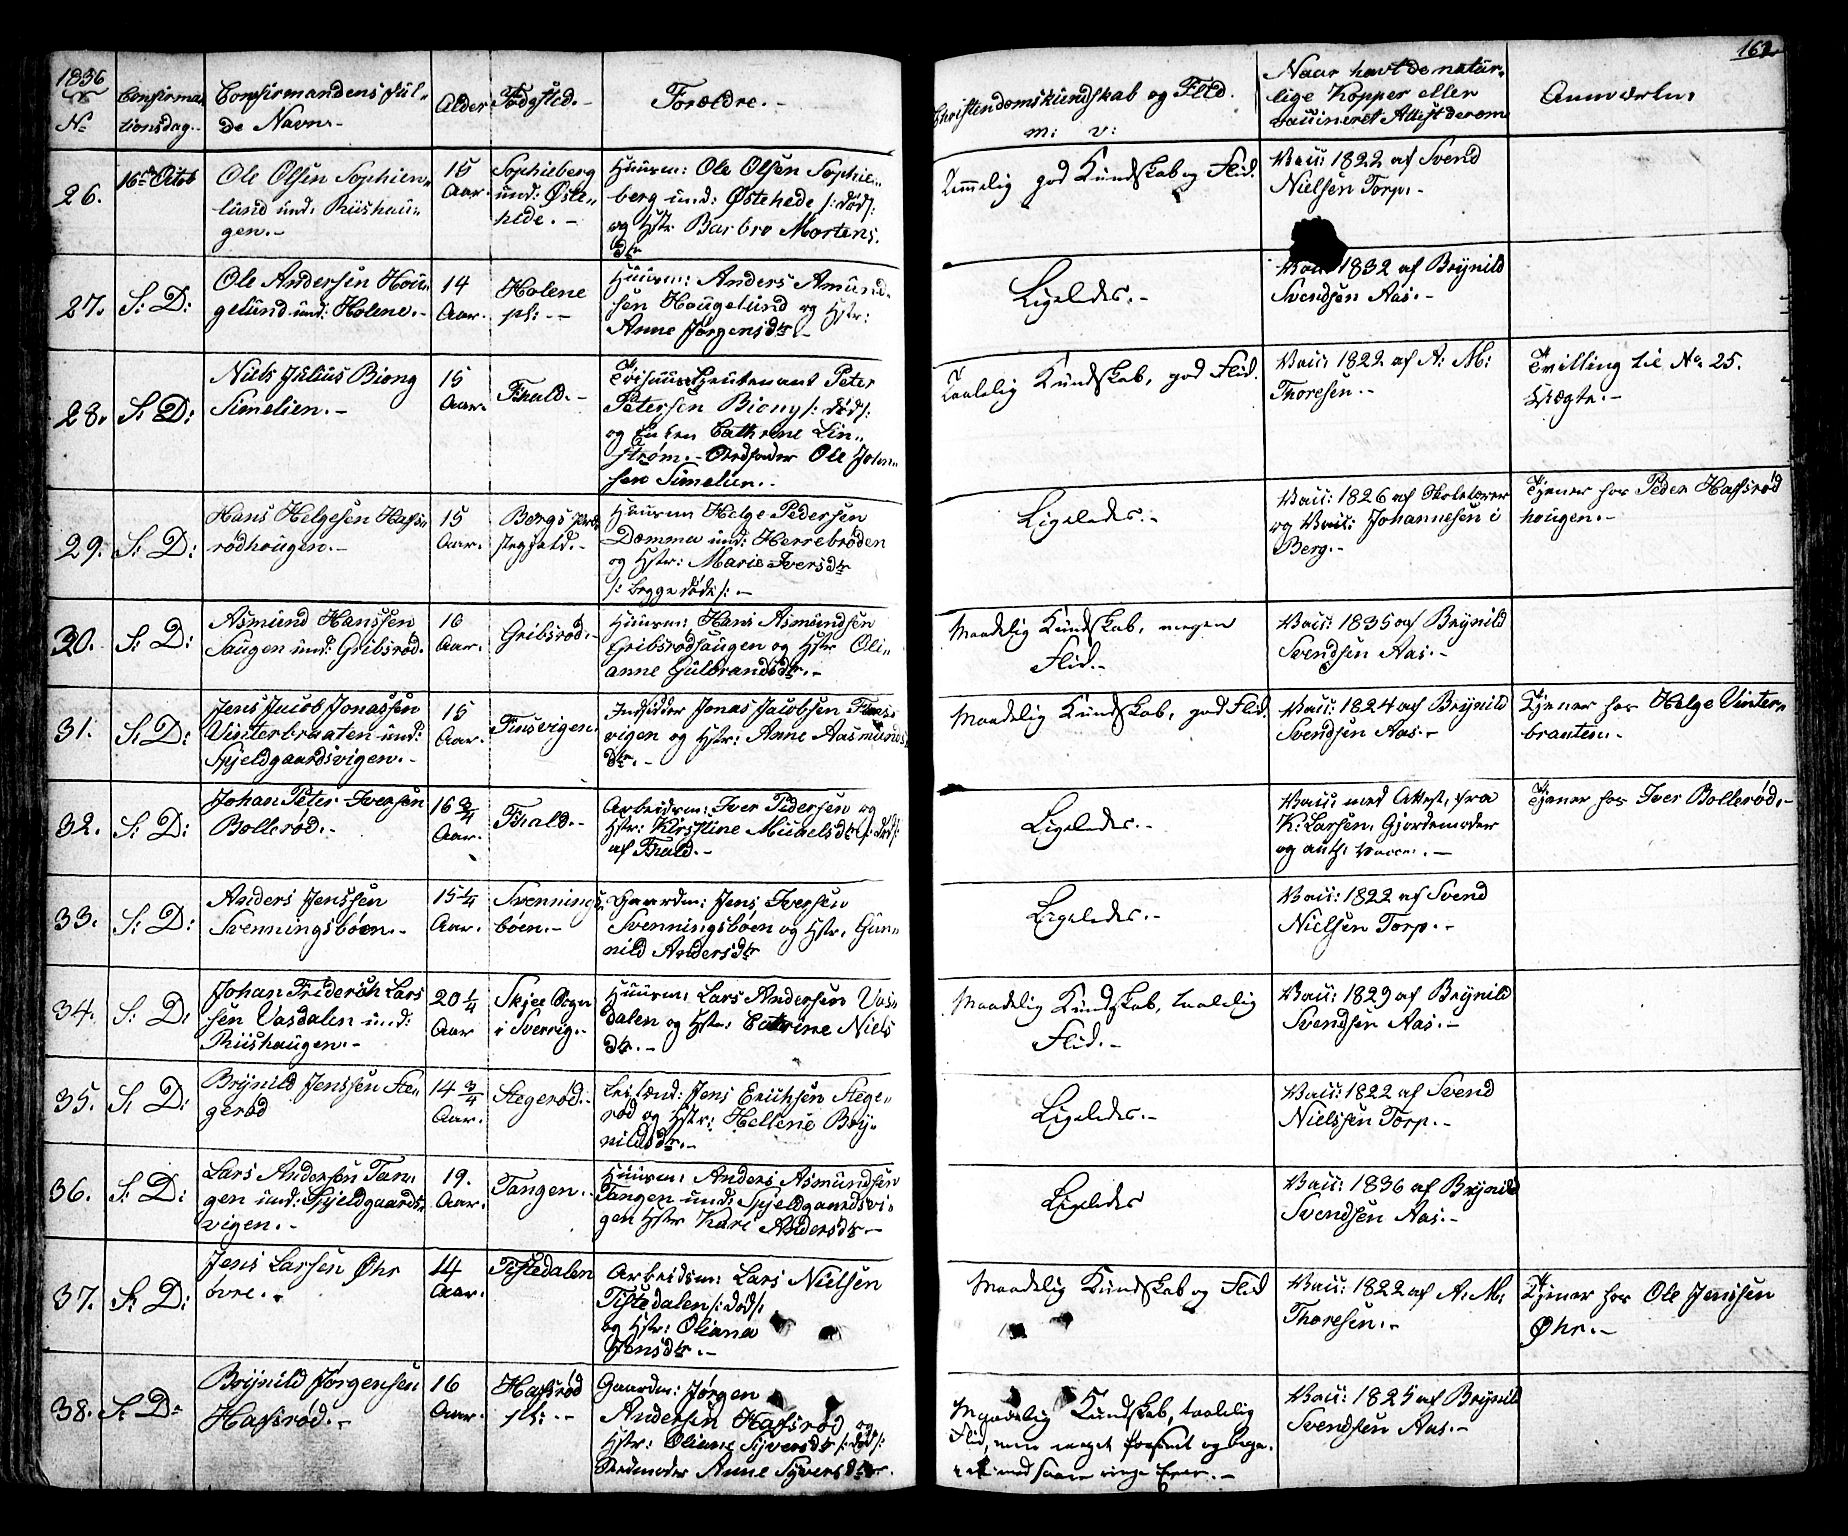 1836
162
No
Confirmationsdag.
Confirmandens fulde Navn.
Alder
Fødested.
Forældre.
Christendomskundskab og Flid.
m: v:
Naar havt de naturlige Kopper eller
vaccineret Attest derom
Anmærkn:
26. 16de Octob
Ole Olsen Sophien-
lund und: Riishau-
gen.-
15
Aar.
Sophieberg
und: Øste-
hede.-
Huusm: Ole Olsen Sophie-
berg und: Østehede /: død :/
og Hstr Barbro Mortens
dtr
Temmelig god Kundskab og Flid.
Vacc: 1822 af Svend
Nielsen Torp.-
27. S: D:
Ole Andersen Hou-
gelund und: Holene.-
14
Aar.
Holene
pl: -
Huusm: Anders Amund-
sen Hougelund og Hstr:
Anne Jørgensdtr.-
Ligeledes.-
Vacc: 1832 af Brynild
Svendsen Aas.-
28. S: D:
Niels Julius Biong
Simelien.-
15
Aar.
Fhald.-
Peter
Petersen Biong /: død :/
og Enken Cathrine Lin-
strøm.- Stedfader Ole Johan-
sen Simelien.-
Taalelig Kundskab, god Flid.
Vacc: 1822 af A: M:
Thoresen.-
Tvilling til No 25.
29. S: D:
Hans Helgesen Hafs-
rødhougen.-
15
Aar.
Bergs Præ-
stegjæld.-
Huusm Helge Pedersen
Damma und: Herrebrøden
og Hstr: Marie Iversdtr
/: begge døde :/ -
Ligeledes.-
Vacc: 1826 af Skolelærer
og Vacc: Johannesen i
Berg.-
Tjener hos Peder Hafsrød
hougen.-
30. S: D:
Asmund Hanssen
Haugen und: Gribsrød.
16
Aar.
Gribsrød.-
Huusm: Hans Asmundsen
Gribsrødhaugen og Hstr Oli-
anne Gulbrandsdtr.-
Maadelig Kundskab, megen
Flid.-
Vacc: 1835 af Brynild
Svendsen Aas.-
31. S: D:
Jens Jacob Jonassen
Vinterbraaten und:
Spjeldgaardsvigen.-
15
Aar.
Finsvigen.
Indsidder Jonas Jacobsen Fins-
vigen og Hstr: Anne Aasmunds
dtr.-
Maadelig Kundskab, god Flid.
Vacc: 1824 af Brynild
Svendsen Aas.-
Tjener hos Helge Vinter-
braaten.-
32. S: D:
Johan Peter Iversen
Bollerød.-
16 3/4
Aar.
Fhald.-
Arbeidsm: Iver Pedersen og
Hstr: Kirstine Michelsdtr /: død :/
af Fhald.-
Ligeledes.-
Vacc: med Attest, fra
K: Larsen, Gjordemoder
og auth: Vaccin: -
Tjener hos Iver Bollerød.-
33. S: D:
Anders Jenssen
Svenningsbøen.-
15 1/4
Aar.
Svennings-
bøen.-
Gaardm: Jens Iversen
Svenningsbøen og Hstr, Gun-
nild Andersdtr
Ligeledes.-
Vacc: 1822 af Svend
Nielsen Torp.-
34. S: D:
Johan Friderich Lars
sen Vasdalen und:
Riishaugen.-
20 1/4
Aar
Skjee Sogn
i Sverrig.-
Huusm: Lars Andersen Vas-
dalen og Hstr: Catrine Niels
dtr.-
Maadelig Kundskab, taalelig
Flid.-
Vacc: 1829 af Brynild
Svendsen Aas.-
35. S: D:
Brynild Jenssen Ste-
gerød
14 3/4
Aar.
Stegerød.-
Leilænd: Jens Erichsen Stege-
rød og Hstr: Hellene Bry-
nildsdtr.-
Ligeledes.-
Vacc: 1822 af Svend
Nielssen Torp.-
36. S: D:
Lars Andersen Tan-
gen und: Spjeldgaards-
vigen.-
19.
Aar.
Tangen.-
Huusm: Anders Asmundsen
Tangen und: Spjeldgaardsvi-
gen Hstr Kari Andersdtr -
Ligeledes
Vacc: 1836 af Brynild
Svendsen Aas.-
37. S: D:
Jens Larsen Øhr
øvre.-
14
Aar.
Tistedalen
Arbeidsm: Lars Nielsen
Tistedalen /: død :/
og Hstr: Oliana
Jensdtr.-
Maadelig Kundskab og Flid
Vacc: 1822 af A: M:
Thoresen.-
Tjener hos Ole Jenssen
Øhr.-
38. S: D:
Brynild Jørgensen
Hafsrød.-
16
Aar.
Hafsrød
pl: -
Gaardm: Jørgen
Andersen Hafsrød og
Hstr: Oliane Syversdtr /: død :/
Stedmoder Anne Syversdtr.
Maadelig Kundskab, taalelig
Flid, men meget forsømt og bega-
vet med saare ringe Evner.-
Vacc: 1825 af Brynild
Svendsen Aas.-